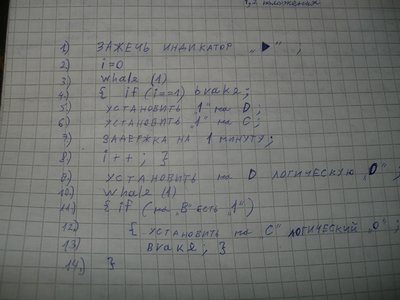 1) ЗАЖЕЧЬ ИНДИКАТОР „▶";
2) i=0
3) whale (1)
4) { if (i==1) brake;
5) УСТАНОВИТЬ „1" на D;
6) УСТАНОВИТЬ „1" на C;
7) ЗАДЕРЖКА НА 1 МИНУТУ;
8) i++; }
9) УСТАНОВИТЬ на D ЛОГИЧЕСКУЮ „0";
10) whale (1)
11) { if (на „В" есть „1")
12) { УСТАНОВИТЬ на „С" ЛОГИЧЕСКИЙ „0";
13) brake; }
14) }